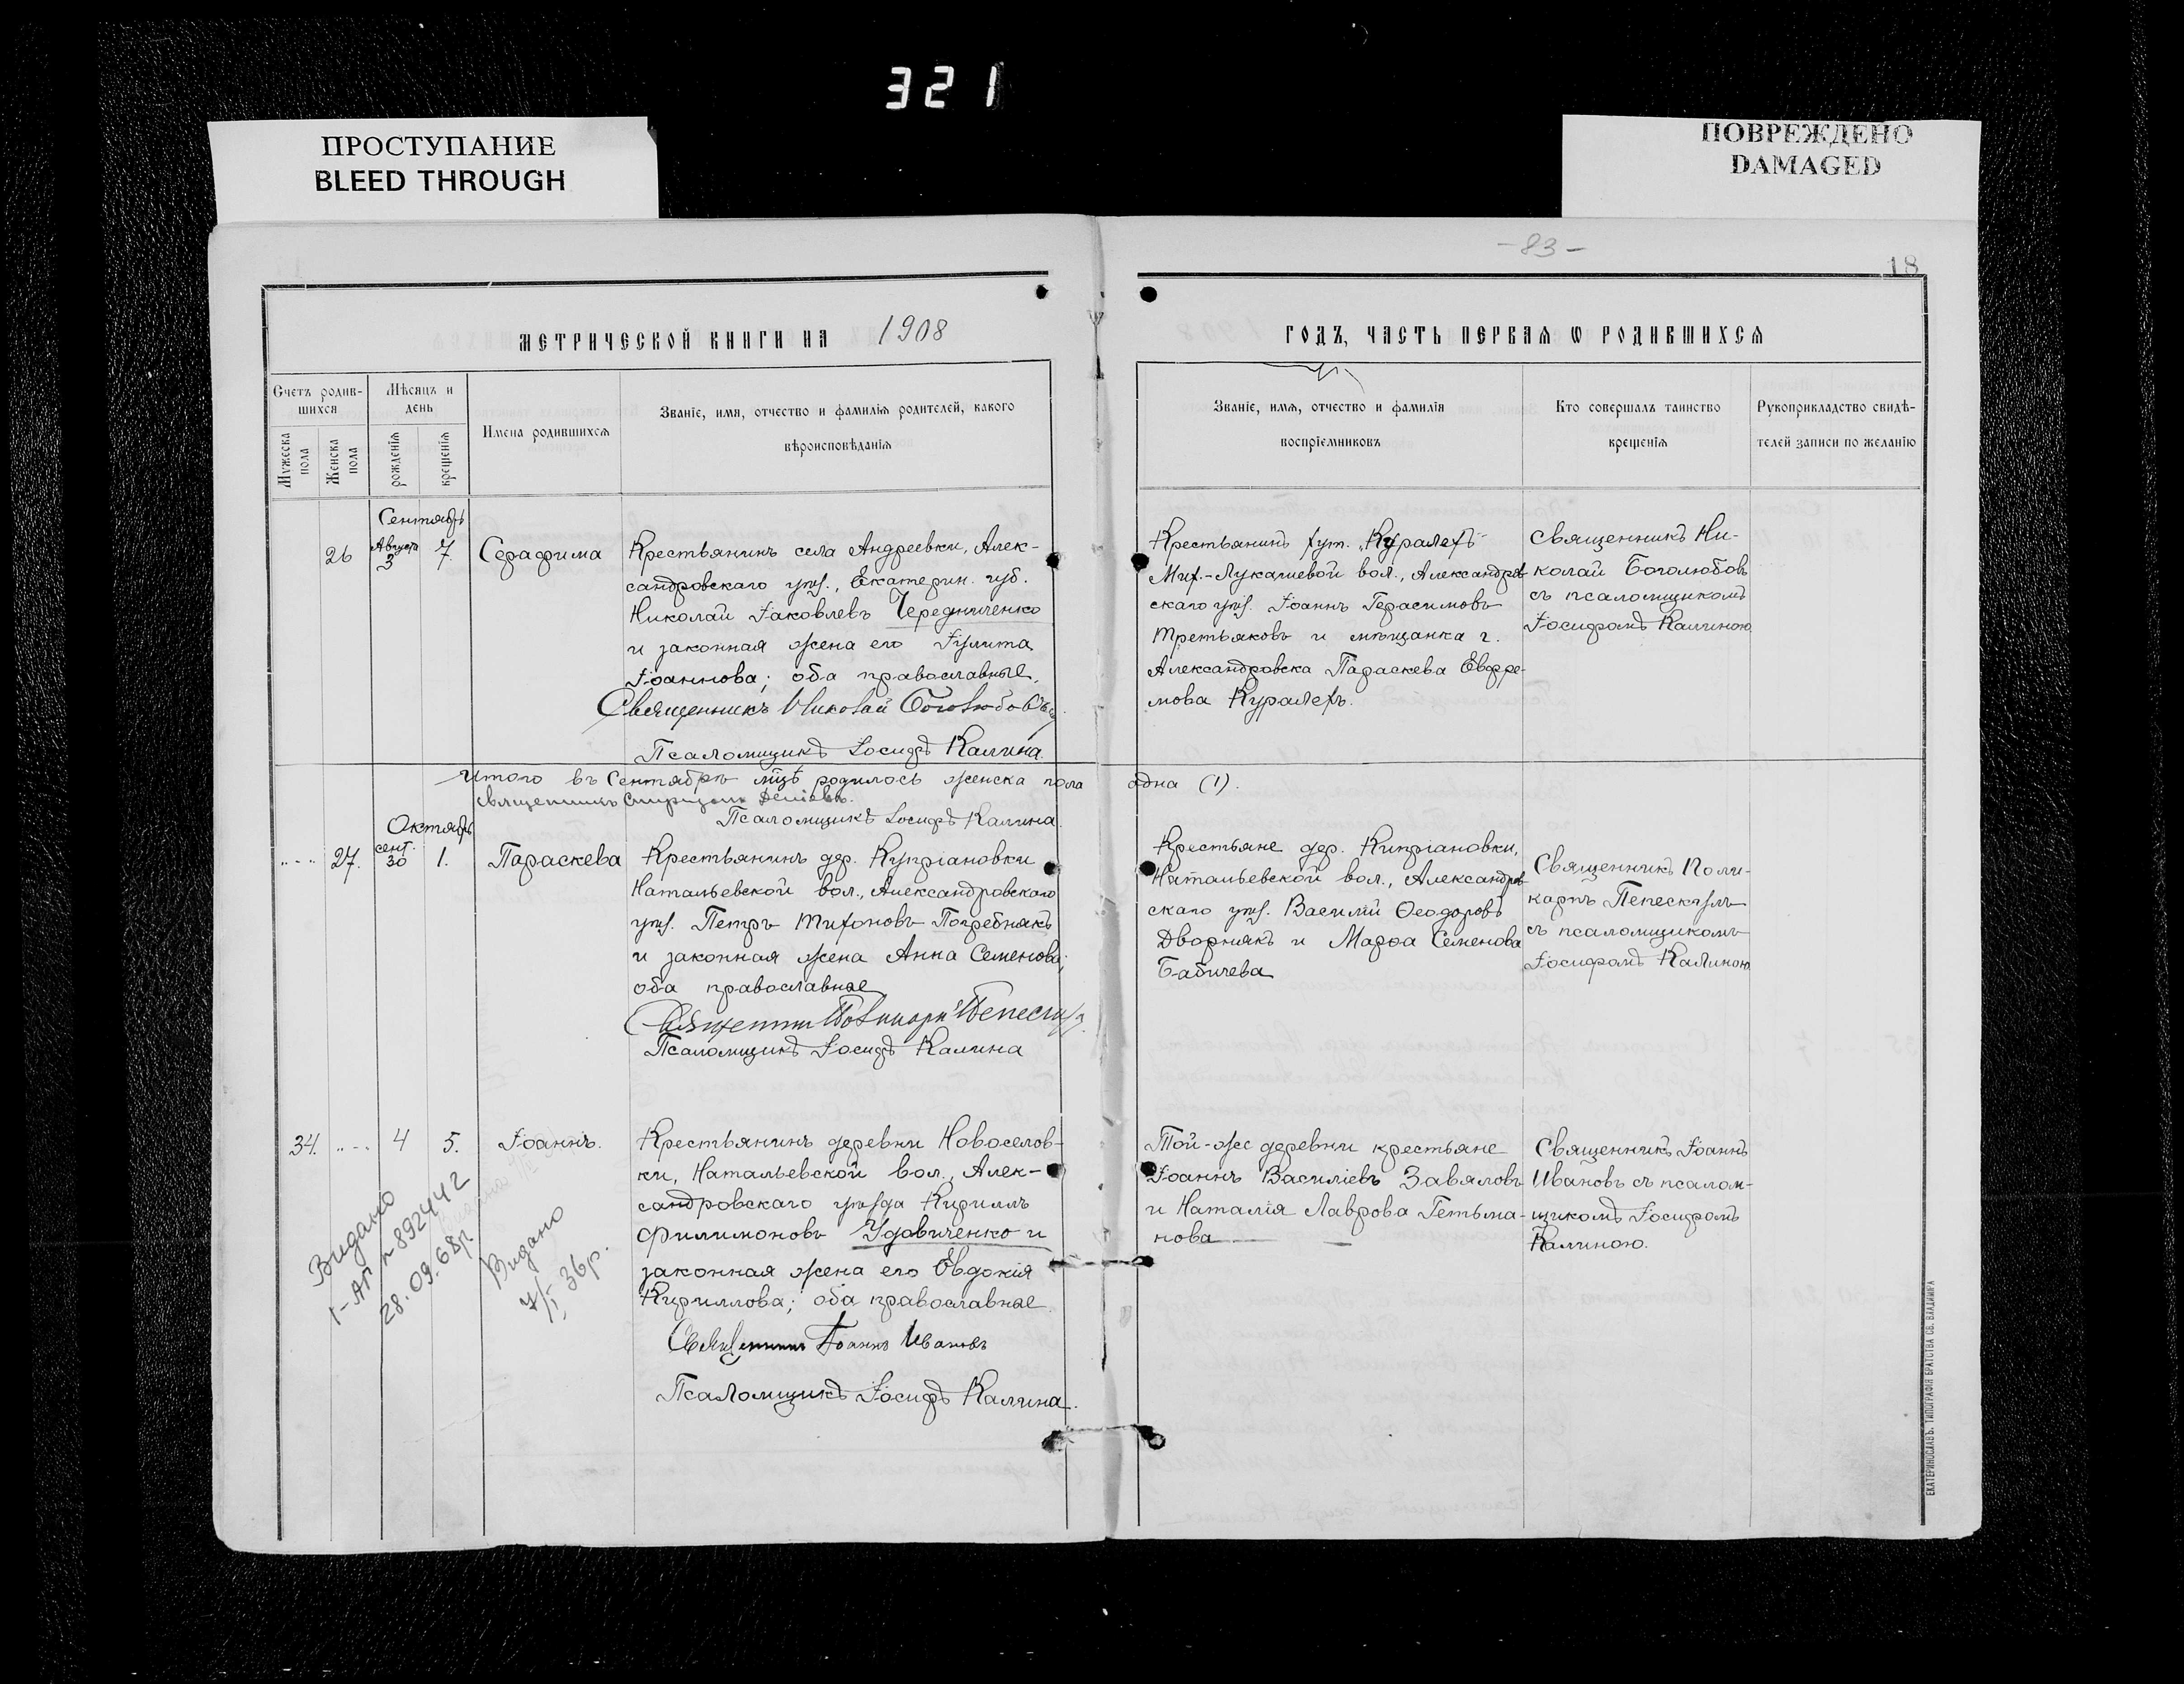 321
ПРОСТУПАНИЕ
BLEED THROUGH
ПОВРЕЖДЕНО
DAMAGED
- 83 -
18
МЕТРИЧЕСКОЙ КНИГИ НА 1908
ГОДЪ, ЧАСТЬ ПЕРВАЯ Ѡ РОДИВШИХСЯ
Счетъ родив-
шихся
Мѣсяцъ и
день
Мужеска
пола
Женска
пола
рожденія
крещенія
Имена родившихся
Званіе, имя, отчество и фамилія родителей, какого
вѣроисповѣданія
Званіе, имя, отчество и фамилія
воспріемниковъ
Кто совершалъ таинство
крещенія
Рукоприкладство свидѣ-
телей записи по желанію
Сентябрь
26
Августа
3
7.
Серафима
Крестьянинъ села Андреевки, Алек-
сандровскаго уѣз., Екатерин. губ.
Николай Іаковлевъ Чередниченко
и законная жена его Іулита
Іоаннова; оба православные.
Священникъ Николай Боголюбовъ
Псаломщикъ Іосифъ Калина.
Крестьянинъ хут. "Куралехъ"
Мих.-Лукашевой вол., Александров
скаго уѣз. Іоаннъ Герасимовъ
Третьяковъ и мѣщанка г.
Александровска Параскева Евфре-
мова Куралехъ.
Священникъ Ни-
колай Боголюбовъ
съ псаломщикомъ
Іосифомъ Калиною
Итого въ Сентябрѣ мцѣ родилось женска пола одна (1).
Священникъ
Псаломщикъ Іосифъ Калина.
Октябрь
27.
сент.
30
1.
Параскева
Крестьянинъ дер. Купріановки
Натальевской вол., Александровскаго
уѣз. Петръ Тихоновъ Погребнякъ
и законная жена Анна Семенова;
оба православные
Псаломщикъ Іосифъ Калина
Крестьяне дер. Кипріановки,
Натальевской вол., Александров
скаго уѣз. Василій Ѳеодоровъ
Дворнякъ и Марѳа Семенова
Бабичева
Священникъ Поли-
карпъ
съ псаломщикомъ
Іосифомъ Калиною
34.
4
5.
Іоаннъ.
Крестьянинъ деревни Новоселов-
ки, Натальевской вол., Алек-
сандровскаго уѣзда Кириллъ
Филимоновъ Удовиченко и
законная жена его Евдокія
Кириллова; оба православные.
Священникъ Іоаннъ Ивановъ
Псаломщикъ Іосифъ Калина.
Той-же деревни крестьяне
Іоаннъ Василіевъ Завяловъ
и Наталія Лаврова Гетьма-
нова
Священникъ Іоаннъ
Ивановъ съ псалом-
щикомъ Іосифомъ
Калиною.
Видано
I-АП n 892442
28.09.68р
Видано
7/I, 36р.
ЕКАТЕРИНОСЛАВЪ. ТИПОГРАФІЯ БРАТСТВА СВ. ВЛАДИМІРА